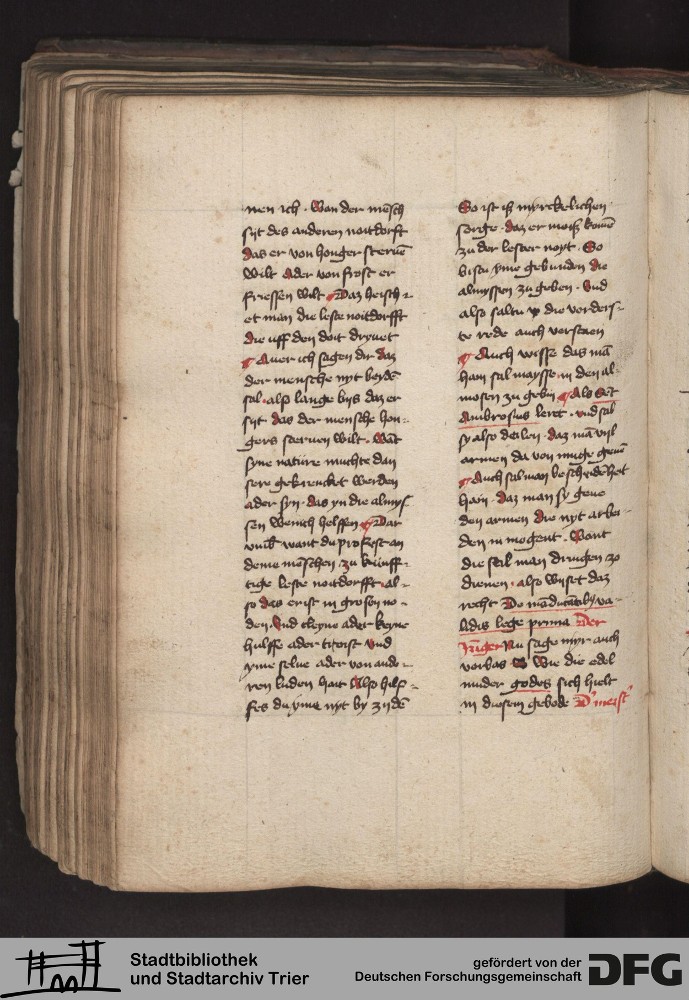 nen ich · Wan der mēsch
sijt des anderen noitdorfft
das er von honger steruē
wilt Ader von frost er
friessen wilt Daz heisch-
et man die leste noitdorfft
die uff den doit dryuet
Auer ich sagen dir daz
der mensche nyt beydē
sal · also lange bijs daz er
sijt · das der mensche hon-
gers steruen wilt · Wāt
syne natüre muchte dan
sere gekrencket werden
ader syn · das yn die almys
sen wenich helffen Dar
vmb want du profest an
deme mēschen zu kunff-
tige leste noitdorfft · al-
so das er ist in grosen no-
den · Vnd cleyne ader keyne
hulffe ader troist Vnd
yme selue ader von ande-
ren luden hait Also hilf-
fes du yme nyt by zijdē
So ist iß myrckelichen
sorge · daz er moiß komē
zu der lester noyt · So
bistu yme gebunden die
almyssen zu geben · Vnd
also saltu die vorders-
te rede auch verstaen
Auch wisse das mā
hain sal maysse in den al-
mosen zu gebin Als Sēt
Ambrosius leret · vnd sal
sy also deilen · daz mā vijl
armen da von muge geuē
Auch sal man bescheidēheit
hain · daz man sy geue
den armen die nyt arbei-
den in mogent · Want
die sal man dringen zo
dienen · also wijset daz
recht De mēdicātibꝫ va-
lidis lege prima Der
Jūger Nu sage myr auch
vorbas Wie die edel
muder godes sich hielt
in diesem gebode D' meist'
Stadtbibliothek
und Stadtarchiv Trier
gefördert von der
Deutschen Forschungsgemeinschaft
DFG